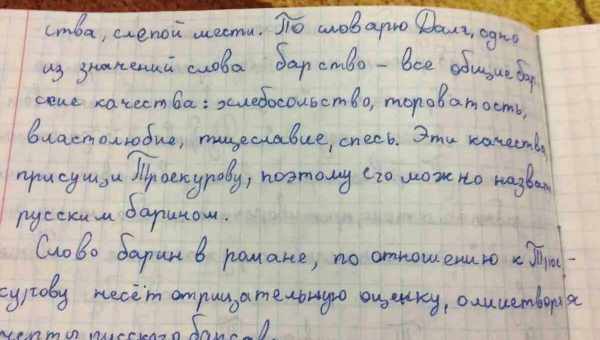 ства, слепой мести. По словарю Даля, одно
из значений слова барство – все общие бар
ские качества: хлебосольство, тороватость,
властолюбие, тщеславие, спесь. Эти качества
присущи Троекурову, поэтому его можно назвать
русским барином.
Слово барин в романе, по отношению к Трое-
курову несёт отрицательную оценку, олицетворяя
черты русского